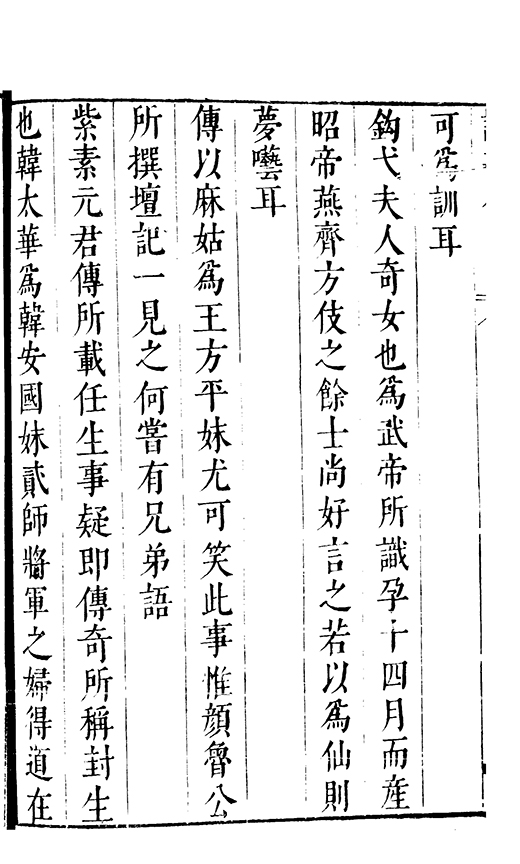 可爲訓耳
鈎弋夫人奇女也爲武帝所識孕十四月而産
昭帝燕齊方伎之餘士尚好言之若以爲仙則
夢囈耳
傳以麻姑爲王方平妹尤可笑此事惟顔魯公
所撰壇記一見之何嘗有兄弟語
紫素元君傳所載任生事疑即傳奇所稱封生
也韓太華爲韓安國妹貳師將軍之婦得道在